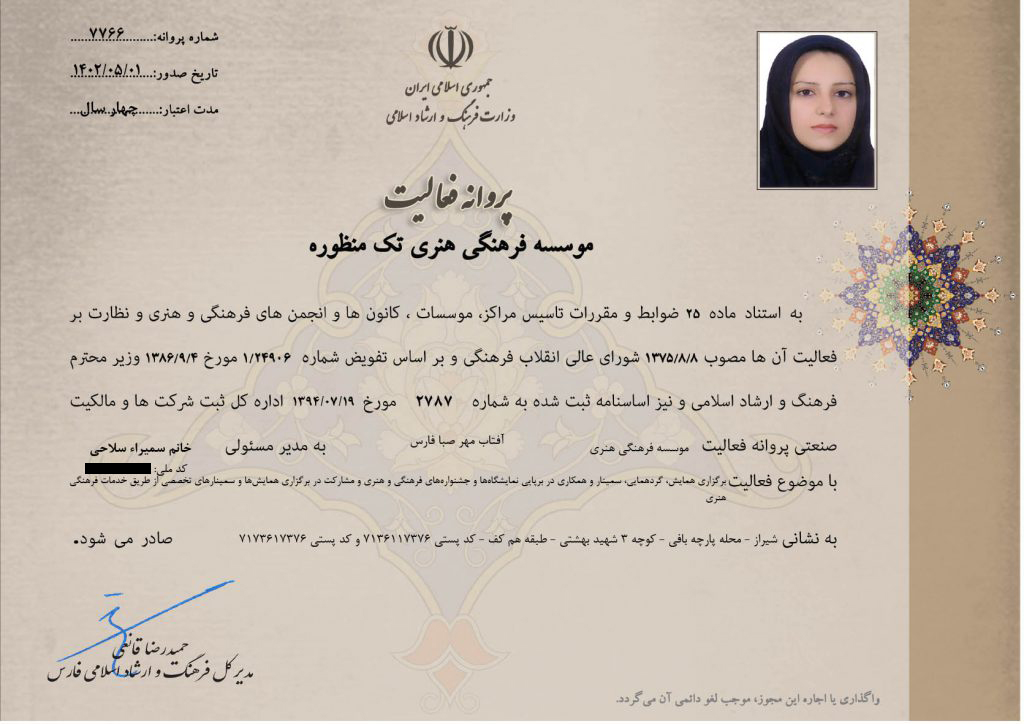 شماره پروانه:.........۷۷۶۶.........
تاریخ صدور:....۱۴۰۲/۰۵/۰۱....
مدت اعتبار:.......چهار سال....
جمهوری اسلامی ایران
وزارت فرهنگ و ارشاد اسلامی
پروانه فعالیت
موسسه فرهنگی هنری تک منظوره
به استناد ماده ۲۵ ضوابط و مقررات تاسیس مراکز، موسسات ، کانون ها و انجمن های فرهنگی و هنری و نظارت بر
فعالیت آن ها مصوب ۱۳۷۵/۸/۸ شورای عالی انقلاب فرهنگی و بر اساس تفویض شماره ۱/۲۴۹۰۶ مورخ ۱۳۸۶/۹/۴ وزیر محترم
فرهنگ و ارشاد اسلامی و نیز اساسنامه ثبت شده به شماره ۲۷۸۷ مورخ ۱۳۹۴/۰۷/۱۹ اداره کل ثبت شرکت ها و مالکیت
صنعتی پروانه فعالیت موسسه فرهنگی هنری آفتاب مهر صبا فارس به مدیر مسئولی خانم سمیراء سلاحی
کد ملی:
با موضوع فعالیت برگزاری همایش، گردهمایی، سمینار و همکاری در برپایی نمایشگاه‌ها و جشنواره‌های فرهنگی و هنری و مشارکت در برگزاری همایش‌ها و سمینارهای تخصصی از طریق خدمات فرهنگی
هنری
به نشانی شیراز - محله پارچه بافی - کوچه ۳ شهید بهشتی - طبقه هم کف - کد پستی ۷۱۳۶۱۱۷۳۷۶ و کد پستی ۷۱۷۳۶۱۷۳۷۶ صادر می شود.
حمیدرضا قانعی
مدیر کل فرهنگ و ارشاد اسلامی فارس
واگذاری یا اجاره این مجوز، موجب لغو دائمی آن می‌گردد.